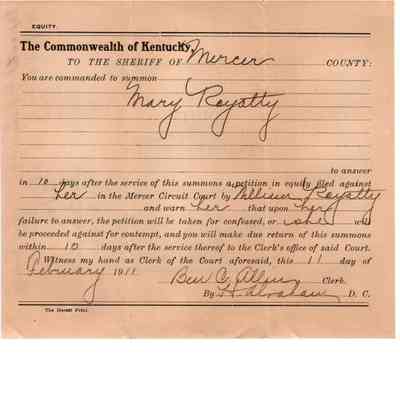 EQUITY.
The Commonwealth of Kentucky,
TO THE SHERIFF OF Mercer COUNTY:
You are commanded to summon
Mary Royalty
to answer
in 10 days after the service of this summons a petition in equity filed against
her in the Mercer Circuit Court by William Royalty
and warn her that upon her
failure to answer, the petition will be taken for confessed, or she will
be proceeded against for contempt, and you will make due return of this summons
within 10 days after the service thereof to the Clerk's office of said Court.
Witness my hand as Clerk of the Court aforesaid, this 11 day of
February 1911 Ben C. Allin Clerk.
By D. C.